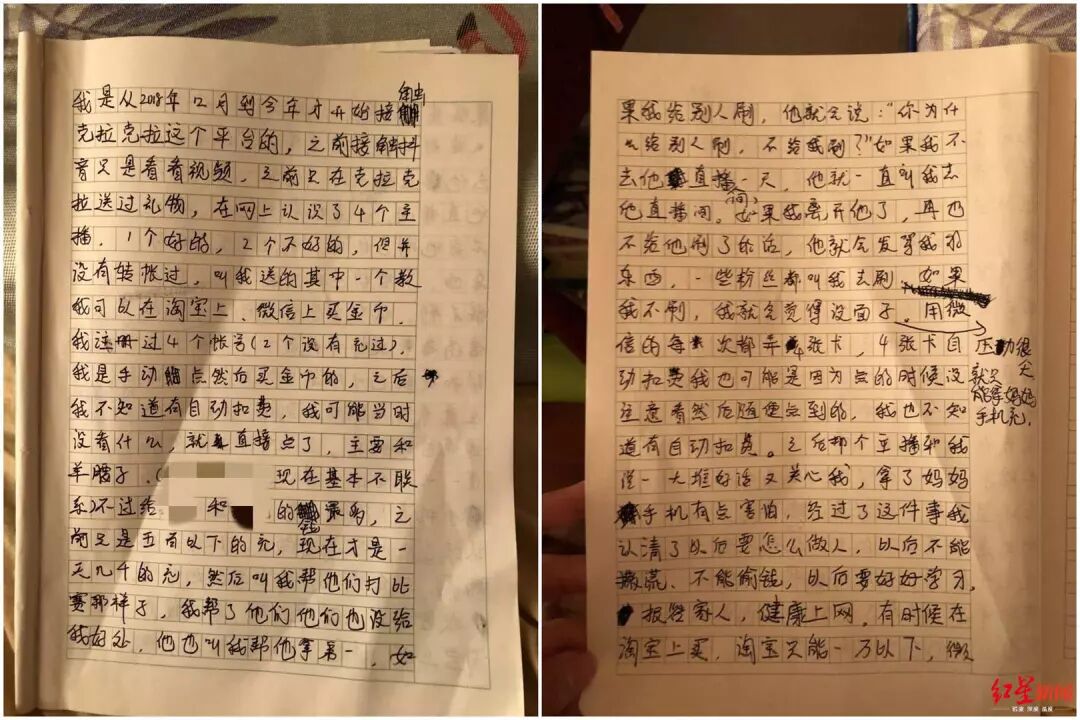 我是从2018年12月到今年才开始接触
克拉克拉这个平台的，之前接触抖
音只是看看视频，之前只在克拉克
拉送过礼物，在网上认识了4个主
播，1个好的，2个不好的，但并
没有转帐过，叫我送的其中一个教
我可以在淘宝上、微信上买金币，
我注册过4个帐号(2个没有充过)，
我是手动点然后买金币的，之后
我不知道有自动扣费，我可能当时
没看什么，就直播点了，主要和
羊腊子，( 现在基本不联
系)不过给 和 的金最多，之
前只是五百以下的充，现在才是一
天几千的充，然后叫我帮他们打比
赛那样子，我帮了他们他们也没给
我好处，他也叫我帮他拿第一，如
果我给别人刷，他就会说："你为什
么给别人刷，不给我刷？"如果我不
去他直播一天，他就一直叫我去
他直播间，如果我离开他了，再也
不给他刷了的话，他就会发骂我的
东西，一些粉丝都叫我去刷，如果
我不刷，我就会觉得没面子。用微
信的每次都弄4张卡，4张卡自
动扣费我也可能是因为点的时候没
注意看然后随便点到的，我也不知
道有自动扣费。之后那个主播和我
说一大堆好话又关心我，拿了妈妈
手机有点害怕，经过了这件事我
认清了以后要怎么做人，以后不能
撒谎、不能偷钱，以后要好好学习，
报答家人，健康上网。有时候在
淘宝上买，淘宝只能一万以下，微
压力很大
就只
能拿妈妈
手机充，
红星新闻